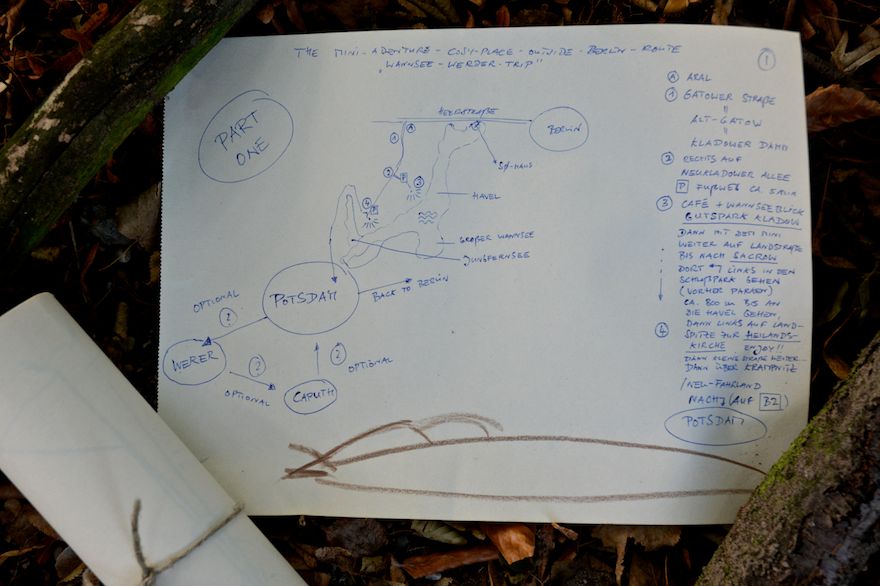 THE MINI-ADVENTURE-COSY-PLACE-OUTSIDE-BERLIN-ROUTE
"WANNSEE-WERDER-TRIP"
1
PART
ONE
HEERSTRAßE
BERLIN
A
1
2
P
3
4
P
HAVEL
GROßER WANNSEE
JUNGFERNSEE
POTSDAM
BACK TO BERLIN
OPTIONAL
?
WERER
?
OPTIONAL
CAPUTH
?
OPTIONAL
A ARAL
1 GATOWER STRAßE
"
ALT-GATOW
"
KLADOWER DAMM
2 RECHTS AUF
NEUKLADOWER ALLEE
P FUßWEG CA. 5 MIN
3 CAFÉ + WANNSEEBLICK
GUTSPARK KLADOW
DANN MIT DEM MINI
WEITER AUF LANDSTRAßE
BIS NACH SACROW
DORT LINKS IN DEN
SCHLOßPARK GEHEN
(VORHER PARKEN)
CA. 800 m BIS AN
DIE HAVEL GEHEN,
DANN LINKS AUF LAND-
SPITZE ZUR HEILANDS-
KIRCHE ENJOY!!
DANN KLEINE STRAßE WEITER..
DANN ÜBER KRAMPNITZ
/NEU-FAHRLAND
NACH (AUF B2)
POTSDAM